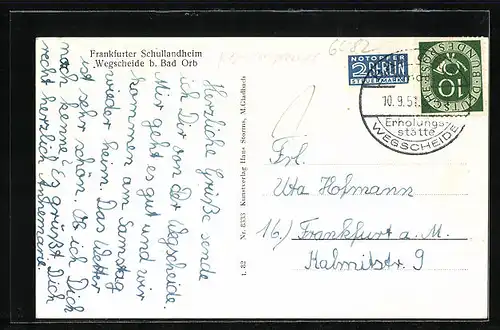 Frankfurter Schullandheim
Wegscheide b. Bad Orb
6682
Herzliche Grüße sende
ich Dir von der Wegscheide.
Mir geht es gut und wir
kommen am Samstag
wieder heim. Das Wetter
ist sehr schön. Ob ich Dich
noch kenne? Es grüßt Dich
recht herzlich Annemarie.
t. 82 Nr. 8333 Kunstverlag Hans Storms, M.Gladbach
NOTOPFER
2 BERLIN
STEUERMARKE
DEUTSCHE BUNDESPOST
10
10.9.51
Erholungs-
stätte
WEGSCHEIDE
Frl.
Uta Hofmann
16) Frankfurt a. M.
Kalmitstr. 9